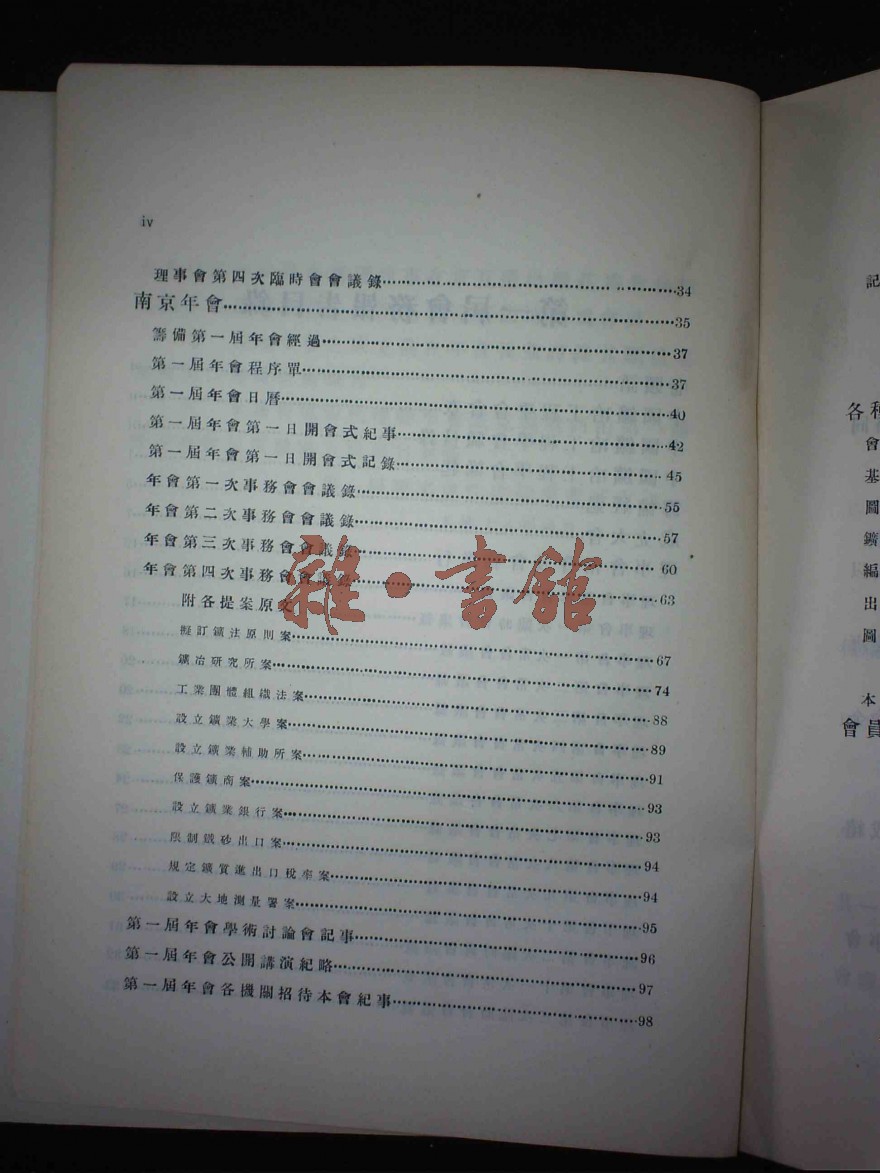 iv
理事會第四次臨時會會議錄……34
南京年會……35
籌備第一屆年會經過……37
第一屆年會程序單……37
第一屆年會日曆……40
第一屆年會第一日開會式紀事……42
第一屆年會第一日開會式記錄……45
年會第一次事務會會議錄……55
年會第二次事務會會議錄……57
年會第三次事務會會議錄……60
年會第四次事務會會議錄……63
附各提案原文
擬訂鑛法原則案……67
鑛冶研究所案……74
工業團體組織法案……88
設立鑛業大學案……89
設立鑛業補助所案……91
保護鑛商案……93
設立鑛業銀行案……93
限制鐵砂出口案……94
規定鑛質進出口稅率案……94
設立大地測量署案……95
第一屆年會學術討論會記事……96
第一屆年會公開講演紀略……97
第一屆年會各機關招待本會紀事……98
雜·書館
記
各種
會
基
圖
鑛
編
出
圖
本
會員